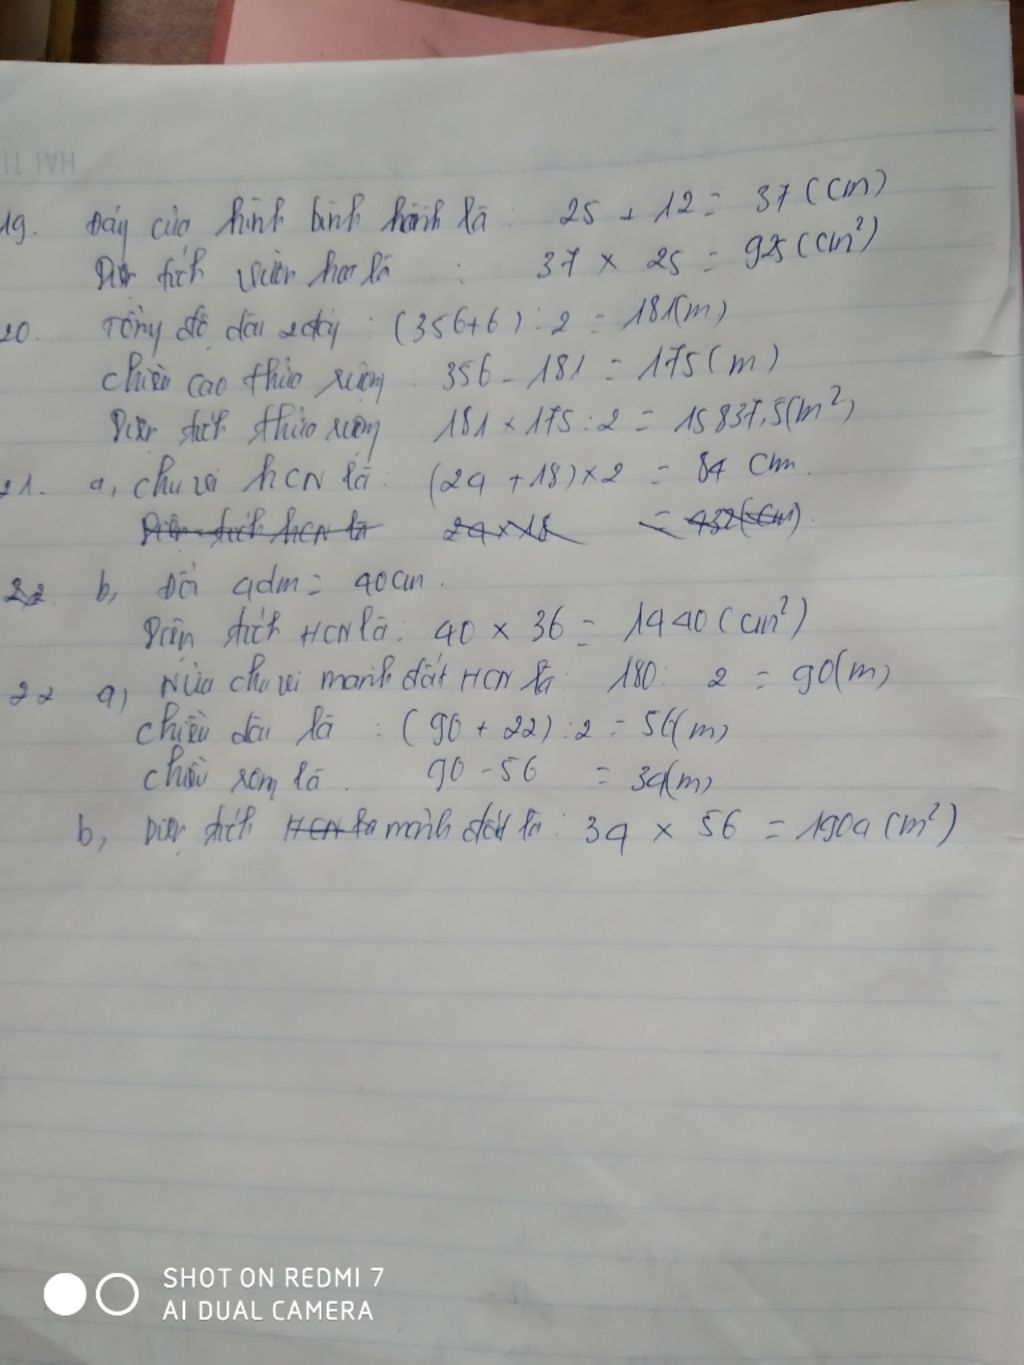 19. Đáy của hình bình hành là : 25 + 12 = 37 (cm)
Diện tích vườn hoa là : 37 x 25 = 925 (cm²)
20. Tổng độ dài 2 đáy : (356+6) : 2 = 181(m)
chiều cao thửa ruộng 356 - 181 = 175 (m)
Diện tích thửa ruộng 181 x 175 : 2 = 15837,5(m²)
21. a, chu vi hCN là : (24 + 18) x 2 = 84 cm.
Diện tích hCN là 24 x 18 = 432 (cm).
22 b, Đổi 4dm = 40cm.
Diện tích HCN là : 40 x 36 = 1440 (cm²)
22 a) Nửa chu vi mảnh đất HCN là : 180 : 2 = 90(m)
chiều dài là : (90 + 22) : 2 = 56(m)
chiều rộng là. 90 - 56 = 34(m)
b, Diện tích HCN là mảnh đất là : 34 x 56 = 1904 (m²)
SHOT ON REDMI 7
AI DUAL CAMERA